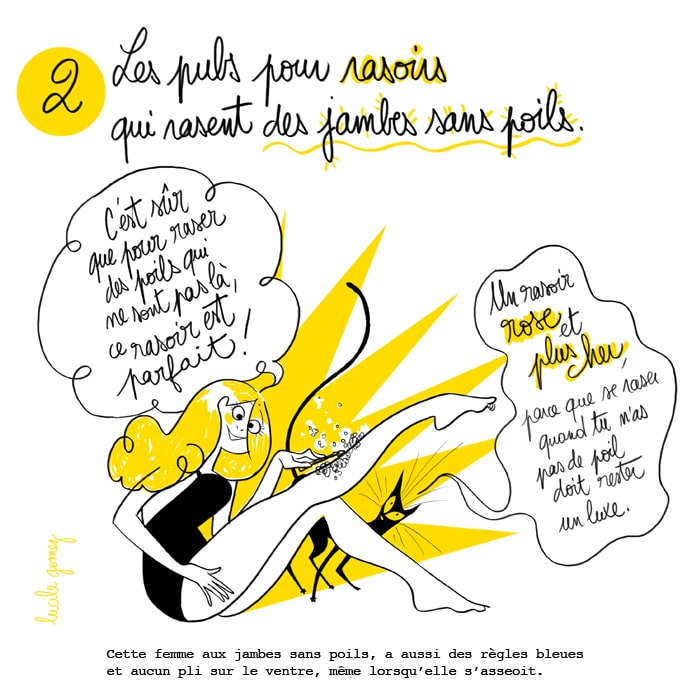 2
Les pubs pour rasoirs
qui rasent des jambes sans poils.
C'est sûr
que pour raser
des poils qui
ne sont pas là,
ce rasoir est
parfait !
Un rasoir
rose et
plus cher,
parce que se raser
quand tu n'as
pas de poil
doit rester
un luxe.
lucile gomez
Cette femme aux jambes sans poils, a aussi des règles bleues
et aucun pli sur le ventre, même lorsqu'elle s'asseoit.